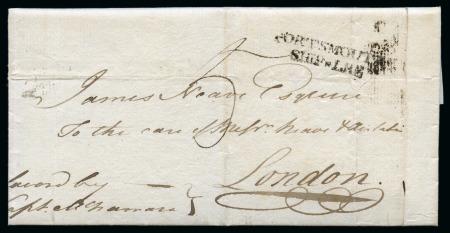 PORTSMOUTH
SHIP LRE
James Neave Esquire
To the care of Messrs Neave &
London.
by
Capt. McNamara